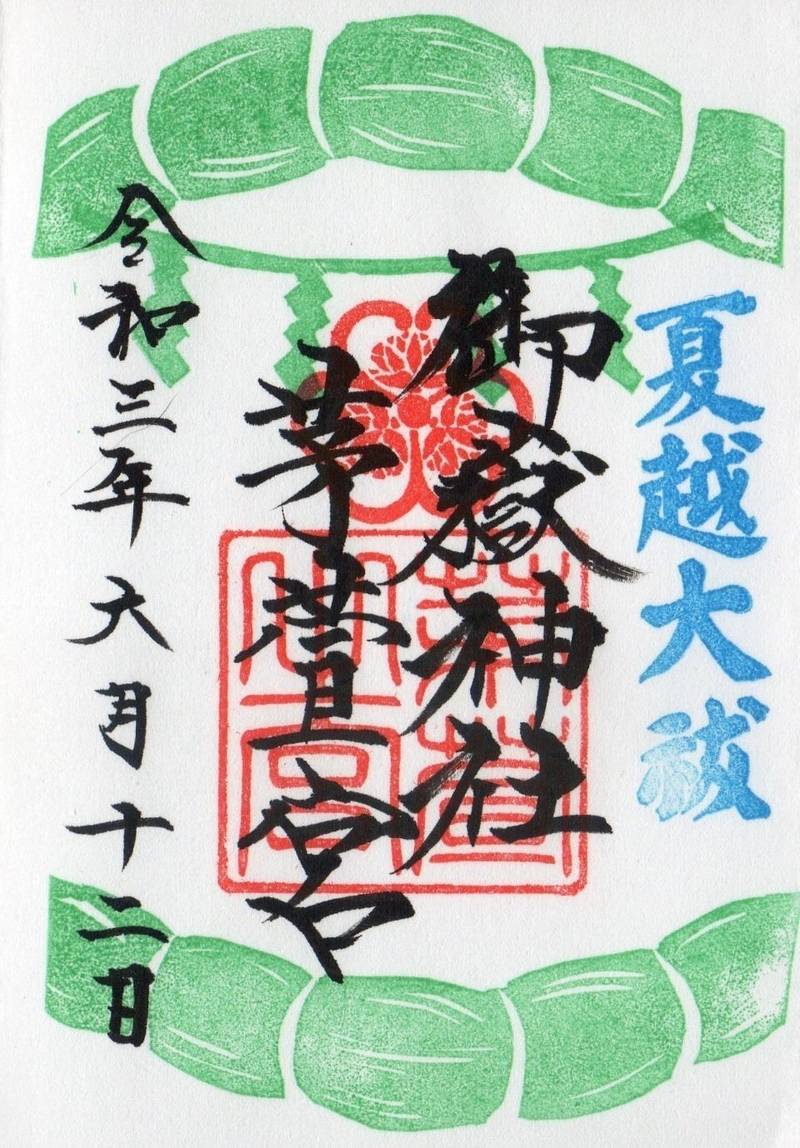 夏越大祓
御嶽神社
茅萱宮
令和三年六月十二日